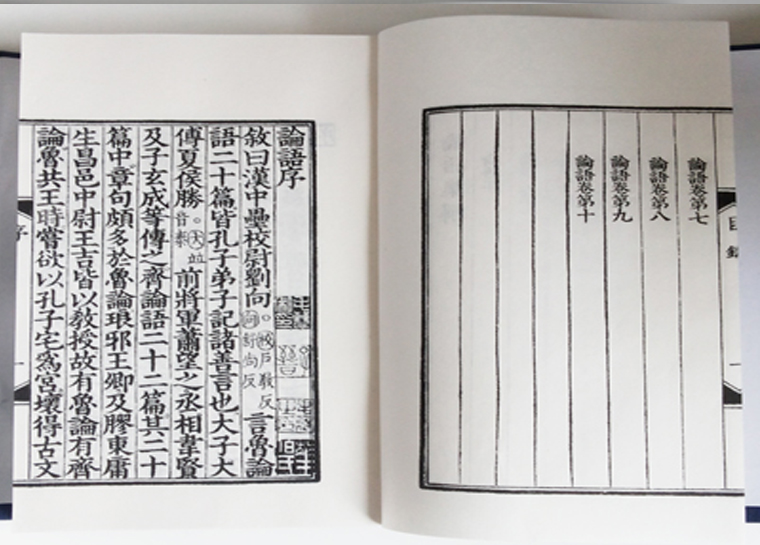 論語卷第七
論語卷第八
論語卷第九
論語卷第十
論語序
敘曰漢中壘校尉劉向。校戶教反向舒尚反言魯論
語二十篇皆孔子弟子記諸善言也大子大
傅夏侯勝。大並音泰前將軍蕭望之丞相韋賢
及子玄成等傳之齊論語二十二篇其二十
篇中章句頗多於魯論琅邪王卿及膠東庸
生昌邑中尉王吉皆以教授故有魯論有齊
論魯共王時嘗欲以孔子宅爲宮壞得古文